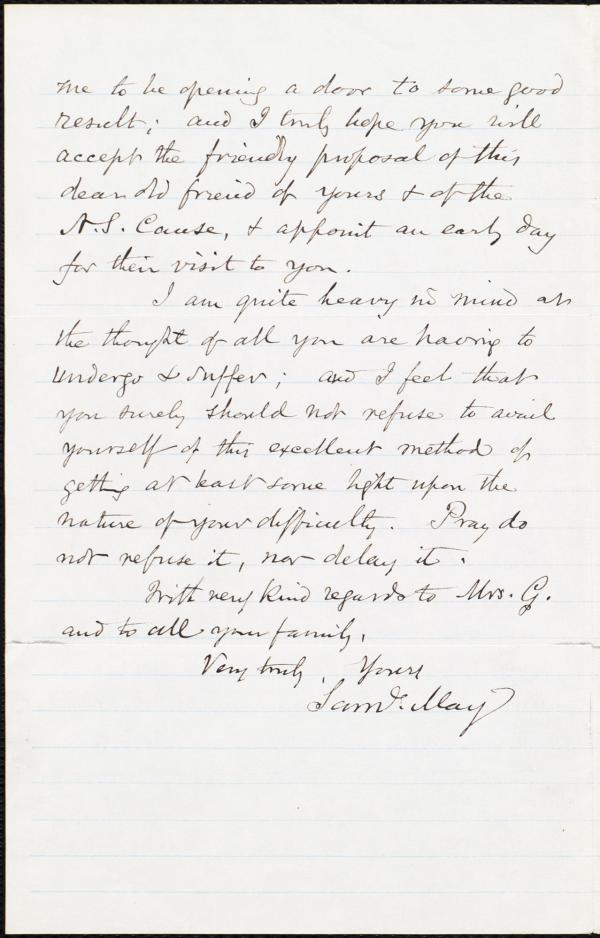 me to be opening a door to some good
result; and I truly hope you will
accept the friendly proposal of this
dear old friend of yours & of the
A.S. Cause, & appoint an early day
for their visit to you.
I am quite heavy in mind at
the thought of all you are having to
undergo & suffer; and I feel that
you surely should not refuse to avail
yourself of this excellent method of
getting at least some light upon the
nature of your difficulty. Pray do
not refuse it, nor delay it.
With very kind regards to Mrs. G.
and to all your family,
Very truly, Yours
Saml. May